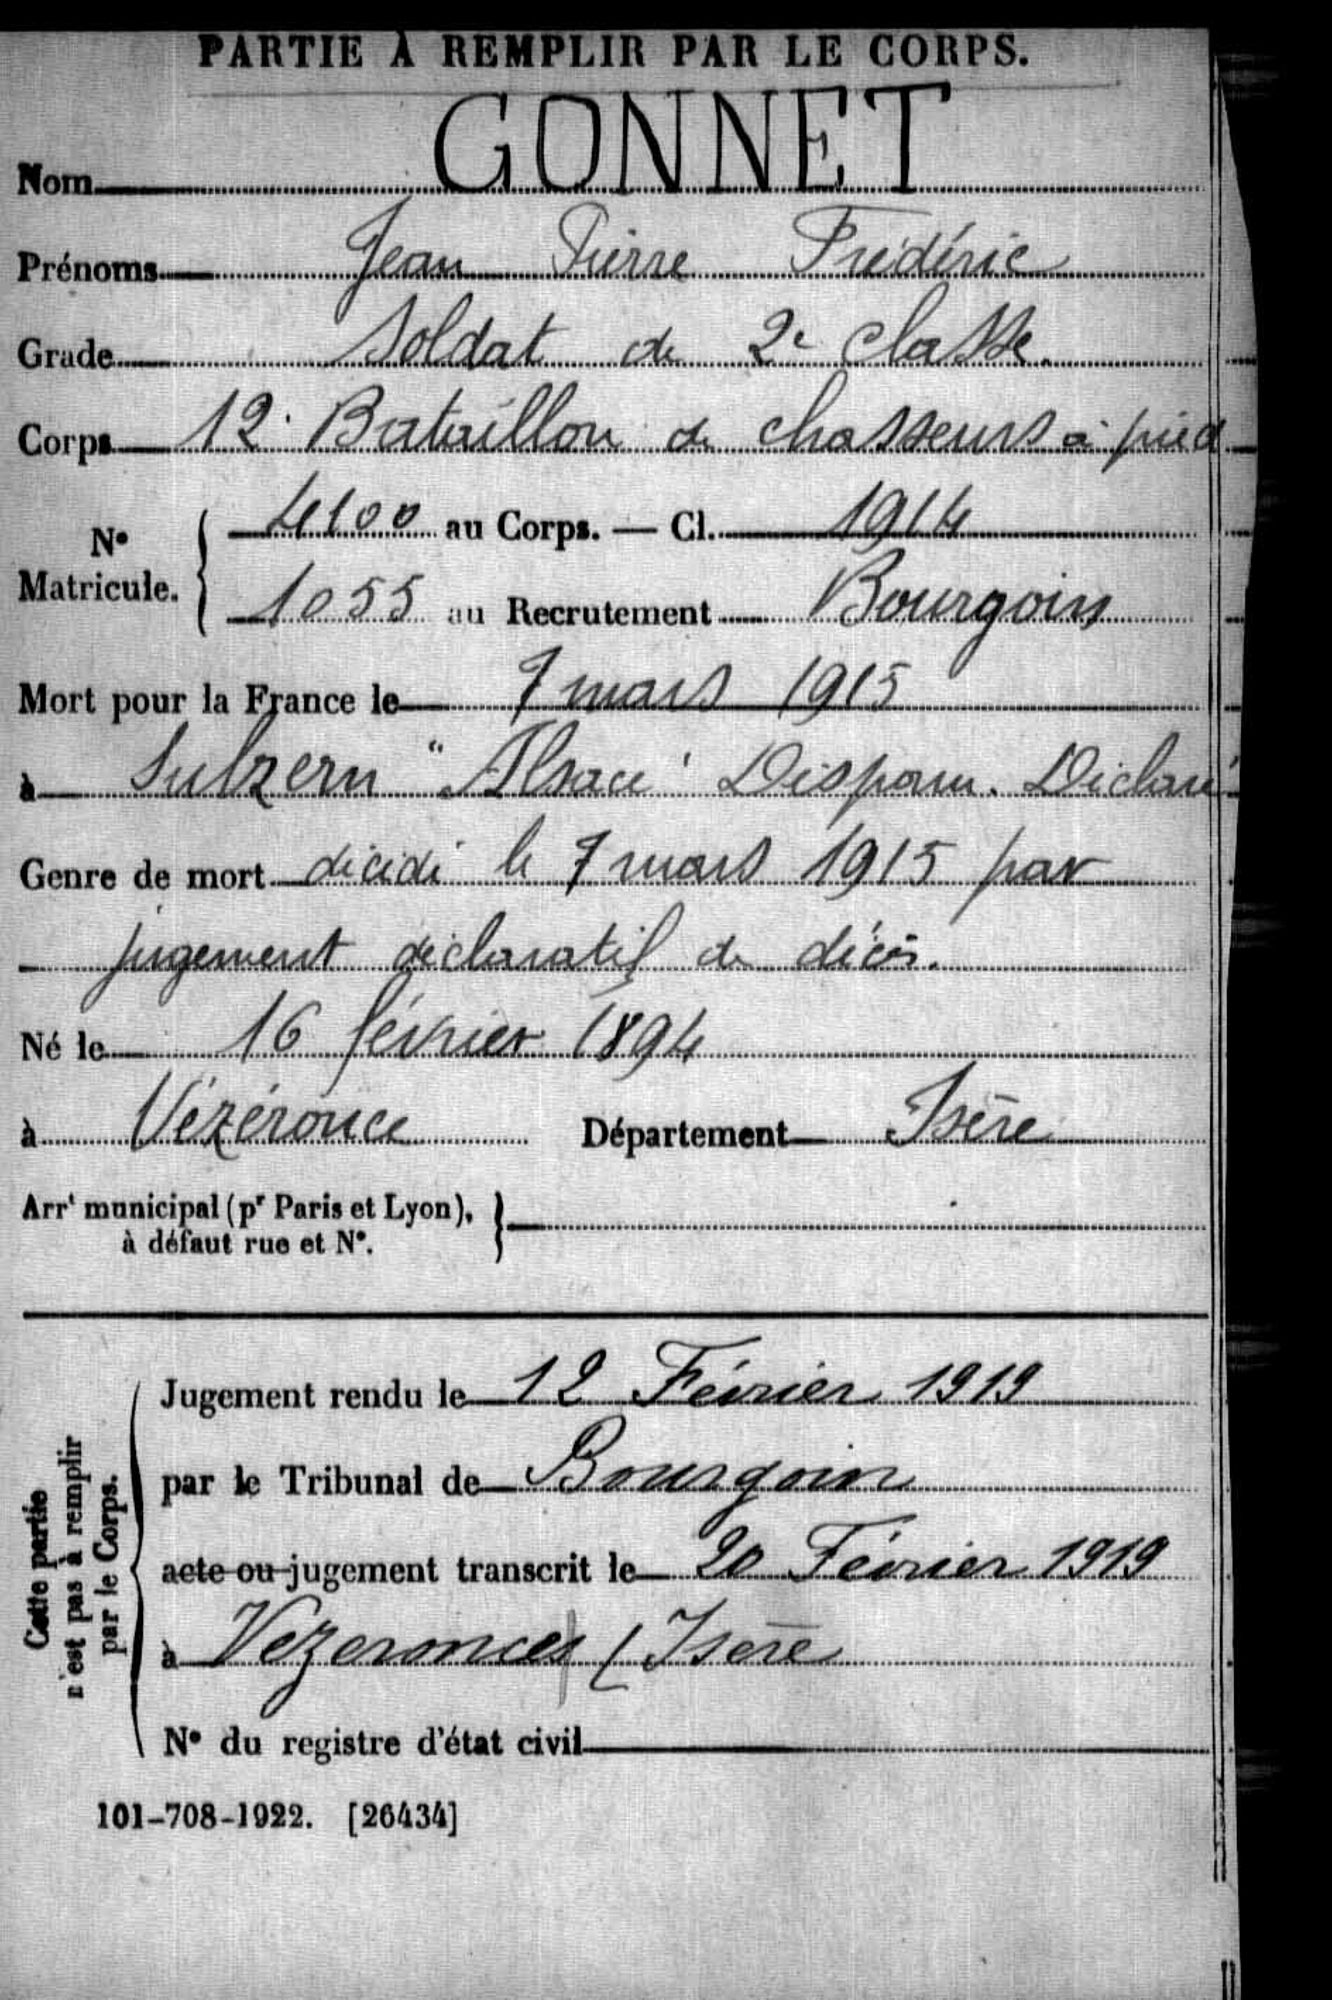 PARTIE À REMPLIR PAR LE CORPS.
Nom GONNET
Prénoms Jean Pierre Frédéric
Grade Soldat de 2e classe.
Corps 12. Bataillon de chasseurs à pied
N° Matricule. { 4100 au Corps. — Cl. 1914
1055 au Recrutement Bourgoin
Mort pour la France le 7 mars 1915
à Sulzern "Alsace" Disparu. Déclaré
Genre de mort décédé le 7 mars 1915 par
jugement déclaratif de décès.
Né le 16 février 1894
à Vézéronce Département Isère
Arrt municipal (pr Paris et Lyon), à défaut rue et N°. }
Cette partie n'est pas à remplir par le Corps.
Jugement rendu le 12 Février 1919
par le Tribunal de Bourgoin
acte ou jugement transcrit le 20 Février 1919
à Vezeronces (Isère
N° du registre d'état civil
101-708-1922. [26434]